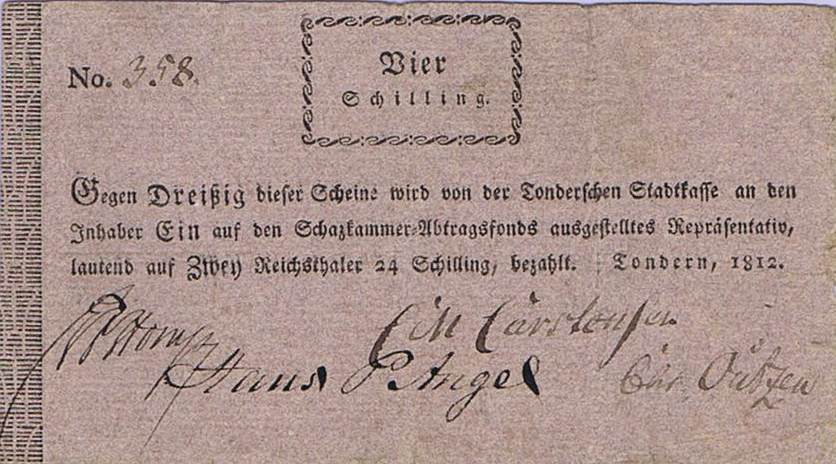 No. 358.
Vier
Schilling.
Gegen Dreißig dieser Scheine wird von der Tonderschen Stadtkasse an den
Inhaber Ein auf den Schazkammer-Abtragsfonds ausgestelltes Repräsentativ,
lautend auf Zwey Reichsthaler 24 Schilling, bezahlt. Tondern, 1812.
Carstensen
Hans P Angel
Chr. Outzen